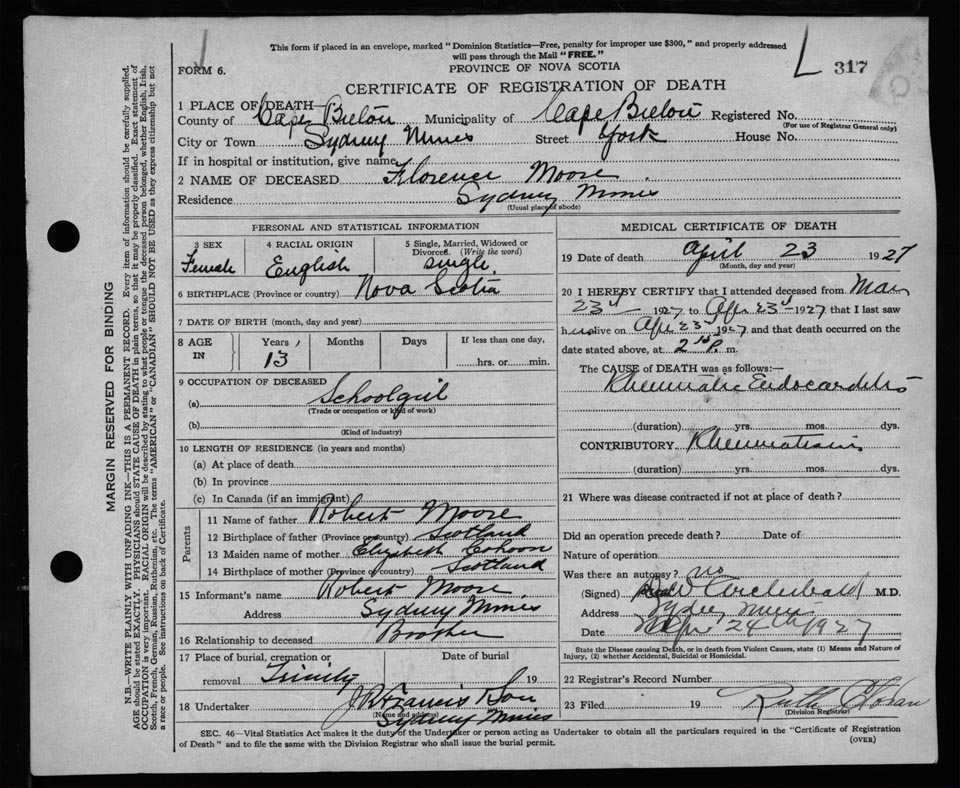 This form if placed in an envelope, marked "Dominion Statistics—Free, penalty for improper use $300," and properly addressed
will pass through the Mail "FREE."
FORM 6.
PROVINCE OF NOVA SCOTIA
317
CERTIFICATE OF REGISTRATION OF DEATH
1 PLACE OF DEATH—
County of Cape Breton Municipality of Cape Breton Registered No.
(For use of Registrar General only)
City or Town Sydney Mines Street York House No.
If in hospital or institution, give name
2 NAME OF DECEASED Florence Moore
Residence Sydney Mines
(Usual place of abode)
PERSONAL AND STATISTICAL INFORMATION
3 SEX 4 RACIAL ORIGIN 5 Single, Married, Widowed or
Divorced. (Write the word)
Female English Single
6 BIRTHPLACE (Province or country) Nova Scotia
7 DATE OF BIRTH (month, day and year)
8 AGE IN Years Months Days If less than one day,
13 hrs. or min.
9 OCCUPATION OF DECEASED
(a) Schoolgirl
(Trade or occupation or kind of work)
(b)
(Kind of industry)
10 LENGTH OF RESIDENCE (in years and months)
(a) At place of death
(b) In province
(c) In Canada (if an immigrant)
Parents
11 Name of father Robert Moore
12 Birthplace of father (Province or country) Scotland
13 Maiden name of mother Elizabeth Cohoon
14 Birthplace of mother (Province or country) Scotland
15 Informant's name Robert Moore
Address Sydney Mines
16 Relationship to deceased Brother
17 Place of burial, cremation or Date of burial
removal Trinity 19
18 Undertaker J R Francis & Son
(Name and address)
Sydney Mines
MEDICAL CERTIFICATE OF DEATH
19 Date of death April 23 1927
(Month, day and year)
20 I HEREBY CERTIFY that I attended deceased from Mar
23rd 1927 to Apr 23rd 1927 that I last saw
her alive on Apr 23rd 1927 and that death occurred on the
date stated above, at 2 P. m.
The CAUSE of DEATH was as follows:—
Rheumatic Endocarditis
(duration) yrs. mos. dys.
CONTRIBUTORY Rheumatism
(duration) yrs. mos. dys.
21 Where was disease contracted if not at place of death?
Did an operation precede death? Date of
Nature of operation
Was there an autopsy? no
(Signed) Archibald M.D.
Address Sydney Mines
Date Apr 24th 1927
State the Disease causing Death, or in death from Violent Causes, state (1) Means and Nature of
Injury, (2) whether Accidental, Suicidal or Homicidal.
22 Registrar's Record Number
23 Filed 19 Ruth
(Division Registrar)
SEC. 46—Vital Statistics Act makes it the duty of the Undertaker or person acting as Undertaker to obtain all the particulars required in the "Certificate of Registration
of Death" and to file the same with the Division Registrar who shall issue the burial permit.
(OVER)
MARGIN RESERVED FOR BINDING
N.B.—WRITE PLAINLY WITH UNFADING INK—THIS IS A PERMANENT RECORD. Every item of information should be carefully supplied.
AGE should be stated EXACTLY. PHYSICIANS should STATE CAUSE OF DEATH in plain terms, so that it may be properly classified. Exact statement of
OCCUPATION is very important. RACIAL ORIGIN will be described by stating to what people or tongue the deceased person belonged, whether English, Irish,
Scotch, French, German, Russian, Ruthenian, etc. The terms "AMERICAN" or "CANADIAN" SHOULD NOT BE USED as they express citizenship but not
a race or people. See instructions on back of Certificate.